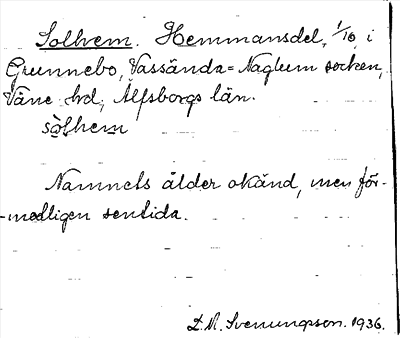 Solhem. Hemmansdel, 1/16, i
Grunnebo, Vassända=Naglum socken,
Väne hd, Älfsborgs län.
sòlhem
Namnets ålder okänd, men för-
-modligen sentida.
D.A. Svenungsson. 1936.